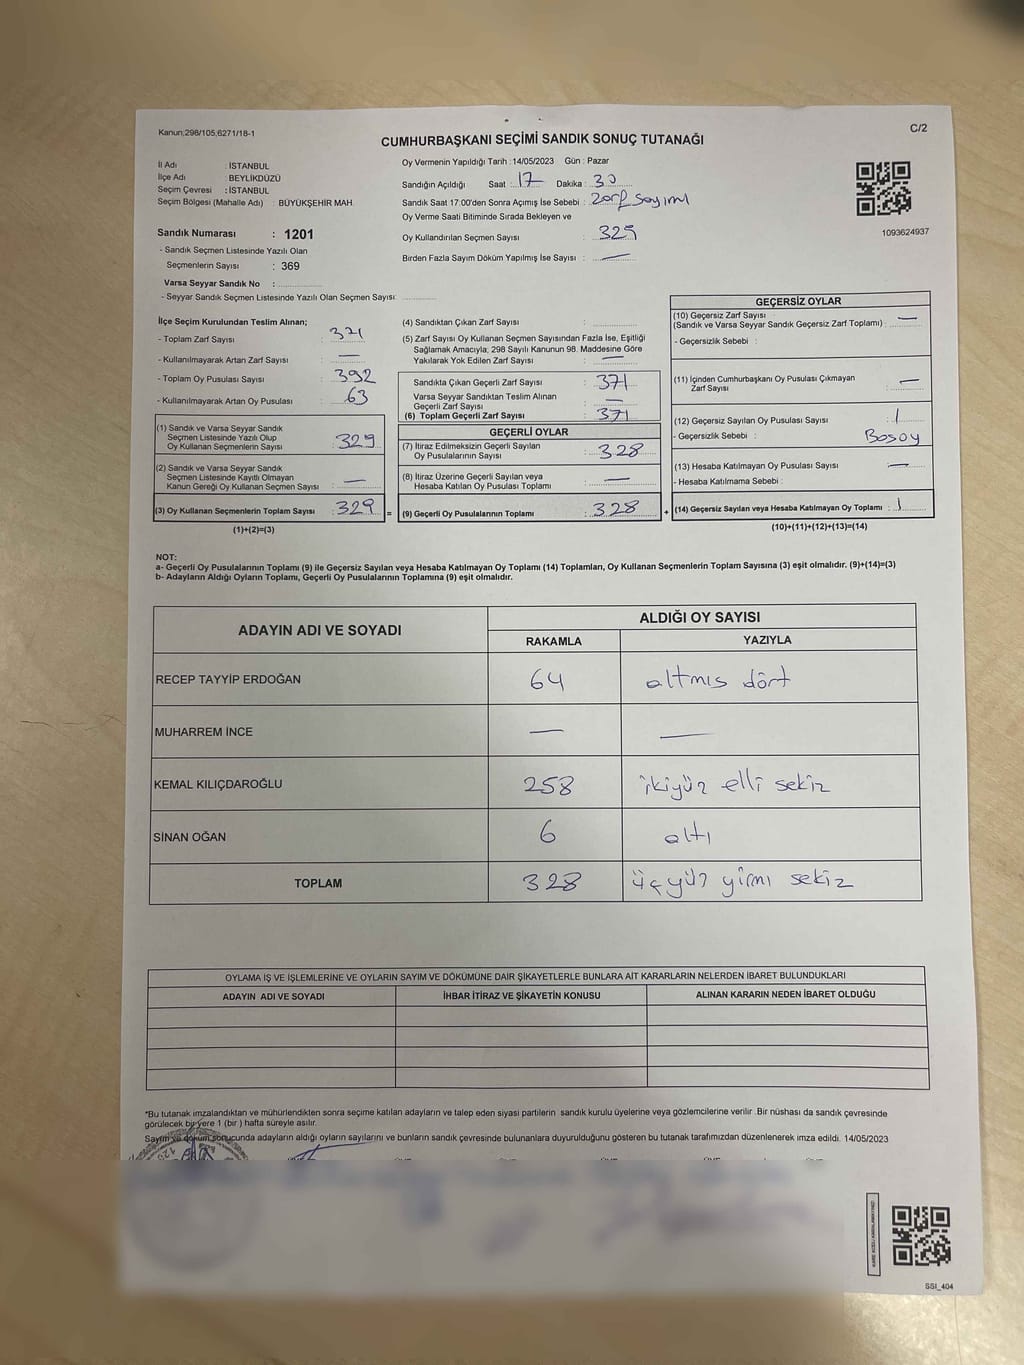 Kanun;298/105,6271/18-1
C/2
CUMHURBAŞKANI SEÇİMİ SANDIK SONUÇ TUTANAĞI
İl Adı : İSTANBUL
İlçe Adı : BEYLİKDÜZÜ
Seçim Çevresi : İSTANBUL
Seçim Bölgesi (Mahalle Adı) : BÜYÜKŞEHİR MAH.
Sandık Numarası : 1201
- Sandık Seçmen Listesinde Yazılı Olan
Seçmenlerin Sayısı : 369
Varsa Seyyar Sandık No :
- Seyyar Sandık Seçmen Listesinde Yazılı Olan Seçmen Sayısı:
Oy Vermenin Yapıldığı Tarih : 14/05/2023 Gün : Pazar
Sandığın Açıldığı Saat : 17 Dakika : 30
Sandık Saat 17:00'den Sonra Açımış İse Sebebi : Zarf Sayımı
Oy Verme Saati Bitiminde Sırada Bekleyen ve
Oy Kullandırılan Seçmen Sayısı : 329
Birden Fazla Sayım Döküm Yapılmış İse Sayısı : —
1093624937
İlçe Seçim Kurulundan Teslim Alınan;
- Toplam Zarf Sayısı : 371
- Kullanılmayarak Artan Zarf Sayısı : —
- Toplam Oy Pusulası Sayısı : 392
- Kullanılmayarak Artan Oy Pusulası : 63
(1) Sandık ve Varsa Seyyar Sandık
Seçmen Listesinde Yazılı Olup
Oy Kullanan Seçmenlerin Sayısı : 329
(2) Sandık ve Varsa Seyyar Sandık
Seçmen Listesinde Kayıtlı Olmayan
Kanun Gereği Oy Kullanan Seçmen Sayısı : —
(3) Oy Kullanan Seçmenlerin Toplam Sayısı : 329 =
(1)+(2)=(3)
(4) Sandıktan Çıkan Zarf Sayısı :
(5) Zarf Sayısı Oy Kullanan Seçmen Sayısından Fazla İse, Eşitliği
Sağlamak Amacıyla; 298 Sayılı Kanunun 98. Maddesine Göre
Yakılarak Yok Edilen Zarf Sayısı : —
Sandıkta Çıkan Geçerli Zarf Sayısı : 371
Varsa Seyyar Sandıktan Teslim Alınan
Geçerli Zarf Sayısı : —
(6) Toplam Geçerli Zarf Sayısı : 371
GEÇERLİ OYLAR
(7) İtiraz Edilmeksizin Geçerli Sayılan
Oy Pusulalarının Sayısı : 328
(8) İtiraz Üzerine Geçerli Sayılan veya
Hesaba Katılan Oy Pusulası Toplamı : —
(9) Geçerli Oy Pusulalarının Toplamı : 328 +
GEÇERSİZ OYLAR
(10) Geçersiz Zarf Sayısı
(Sandık ve Varsa Seyyar Sandık Geçersiz Zarf Toplamı) : —
- Geçersizlik Sebebi :
(11) İçinden Cumhurbaşkanı Oy Pusulası Çıkmayan
Zarf Sayısı : —
(12) Geçersiz Sayılan Oy Pusulası Sayısı : 1
- Geçersizlik Sebebi :
(13) Hesaba Katılmayan Oy Pusulası Sayısı : —
- Hesaba Katılmama Sebebi :
(14) Geçersiz Sayılan veya Hesaba Katılmayan Oy Toplamı : 1
(10)+(11)+(12)+(13)=(14)
NOT:
a- Geçerli Oy Pusulalarının Toplamı (9) ile Geçersiz Sayılan veya Hesaba Katılmayan Oy Toplamı (14) Toplamları, Oy Kullanan Seçmenlerin Toplam Sayısına (3) eşit olmalıdır. (9)+(14)=(3)
b- Adayların Aldığı Oyların Toplamı, Geçerli Oy Pusulalarının Toplamına (9) eşit olmalıdır.
ADAYIN ADI VE SOYADI
ALDIĞI OY SAYISI
RAKAMLA YAZIYLA
RECEP TAYYİP ERDOĞAN 64 altmış dört
MUHARREM İNCE — —
KEMAL KILIÇDAROĞLU 258 ikiyüz elli sekiz
SİNAN OĞAN 6 altı
TOPLAM 328 üçyüz yirmi sekiz
OYLAMA İŞ VE İŞLEMLERİNE VE OYLARIN SAYIM VE DÖKÜMÜNE DAİR ŞİKAYETLERLE BUNLARA AİT KARARLARIN NELERDEN İBARET BULUNDUKLARI
ADAYIN ADI VE SOYADI İHBAR İTİRAZ VE ŞİKAYETİN KONUSU ALINAN KARARIN NEDEN İBARET OLDUĞU
*Bu tutanak imzalandıktan ve mühürlendikten sonra seçime katılan adayların ve talep eden siyasi partilerin sandık kurulu üyelerine veya gözlemcilerine verilir .Bir nüshası da sandık çevresinde
görülecek bir yere 1 (bir ) hafta süreyle asılır.
Sayım ve döküm sonucunda adayların aldığı oyların sayılarını ve bunların sandık çevresinde bulunanlara duyurulduğunu gösteren bu tutanak tarafımızdan düzenlenerek imza edildi. 14/05/2023
SSI_404